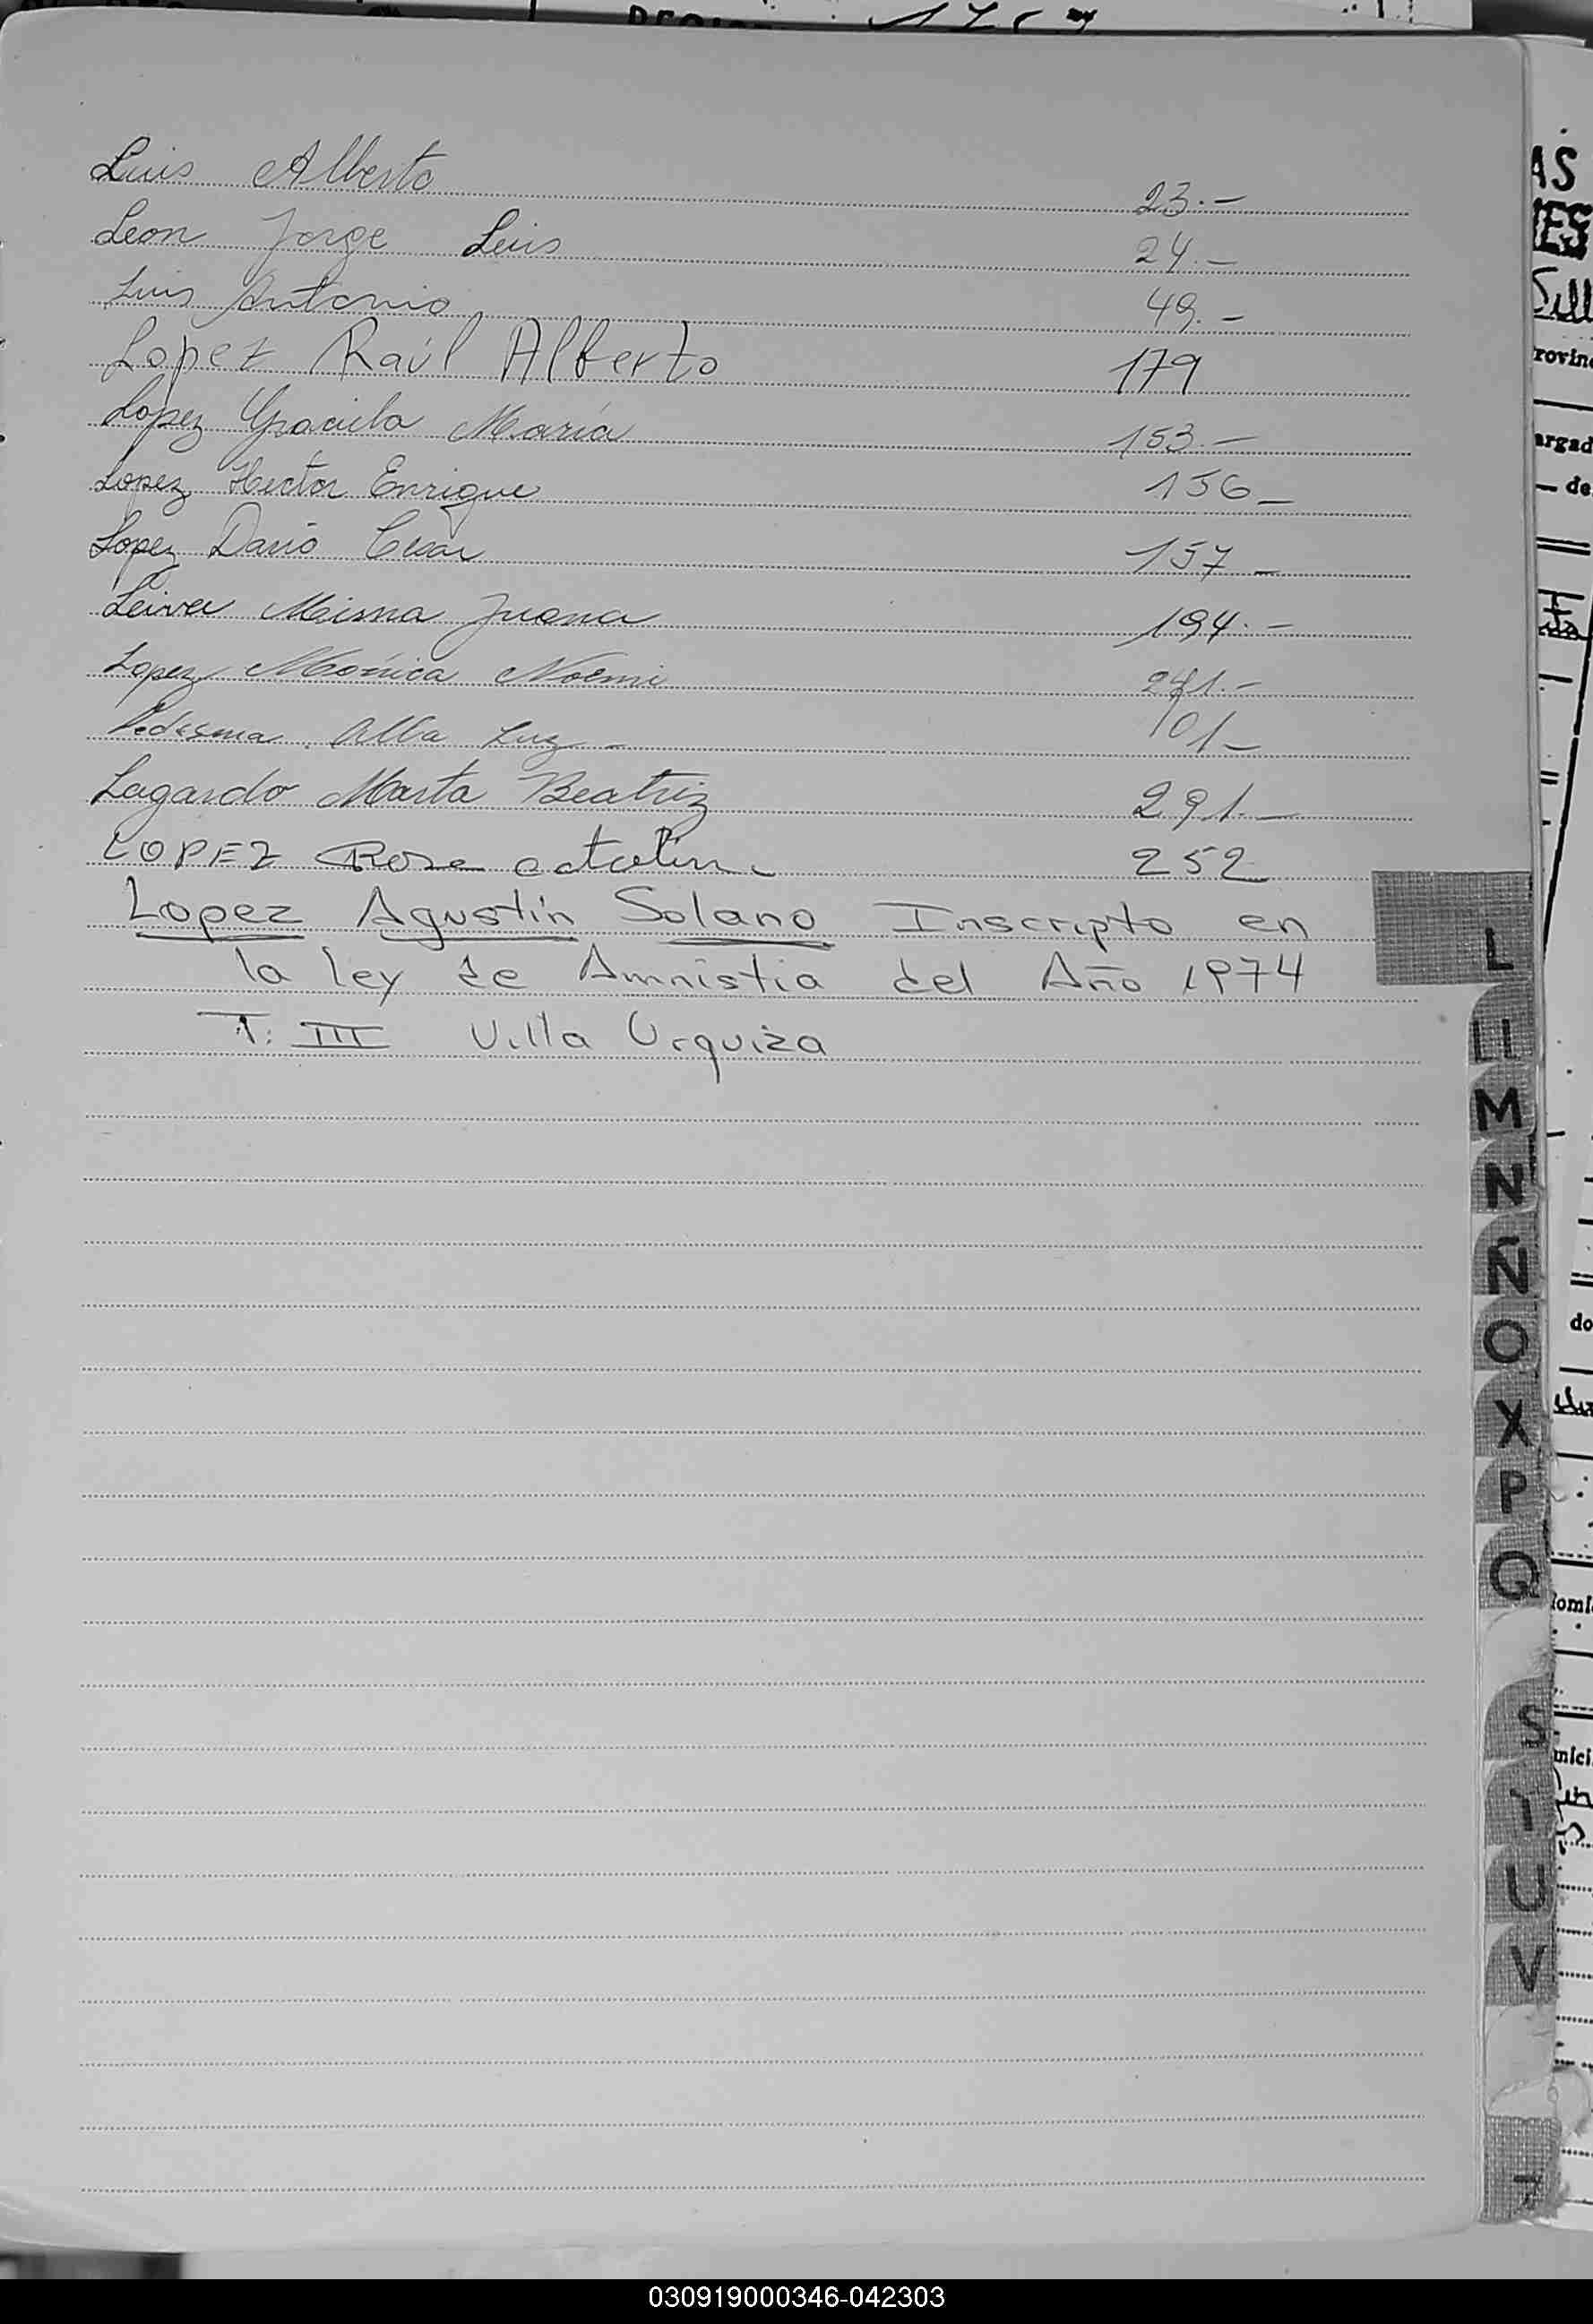 Luis Alberto 23.-
Leon Jorge Luis 24.-
Luis Antonio 49.-
Lopez Raúl Alberto 179
Lopez Graciela María 153.-
Lopez Hector Enrique 156-
Lopez Dario Cesar 157-
Leiva Mirna Juana 194.-
Lopez Mónica Noemi 241.-
Ledesma Alba Luz - 101-
Lagardo Marta Beatriz 291.-
LOPEZ Rosa 252
Lopez Agustín Solano Inscripto en
la ley de Amnistia del Año 1974
T: III Villa Urquiza
L
Ll
M
N
Ñ
O
X
P
Q
S
U
V
030919000346-042303